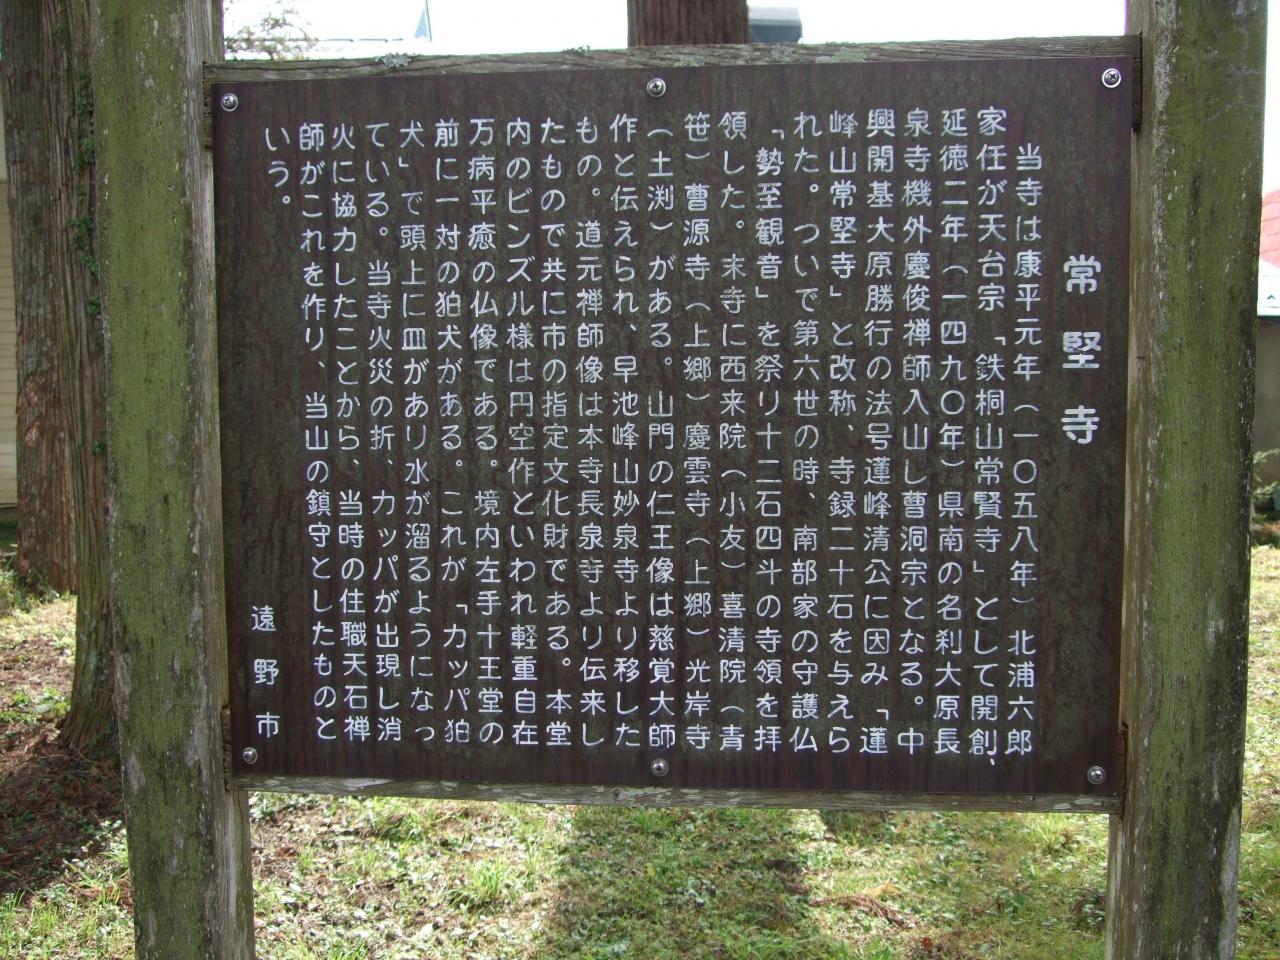 常堅寺
当寺は康平元年（一〇五八年）北浦六郎
家任が天台宗「鉄桐山常賢寺」として開創、
延徳二年（一四九〇年）県南の名刹大原長
泉寺機外慶俊禅師入山し曹洞宗となる。中
興開基大原勝行の法号蓮峰清公に因み「蓮
峰山常堅寺」と改称、寺録二十石を与えら
れた。ついで第六世の時、南部家の守護仏
「勢至観音」を祭り十二石四斗の寺領を拝
領した。末寺に西来院（小友）喜清院（青
笹）曹源寺（上郷）慶雲寺（上郷）光岸寺
（土渕）がある。山門の仁王像は慈覚大師
作と伝えられ、早池峰山妙泉寺より移した
もの。道元禅師像は本寺長泉寺より伝来し
たもので共に市の指定文化財である。本堂
内のビンズル様は円空作といわれ軽重自在
万病平癒の仏像である。境内左手十王堂の
前に一対の狛犬がある。これが「カッパ狛
犬」で頭上に皿があり水が溜るようになっ
ている。当寺火災の折、カッパが出現し消
火に協力したことから、当時の住職天石禅
師がこれを作り、当山の鎮守としたものと
いう。
遠野市